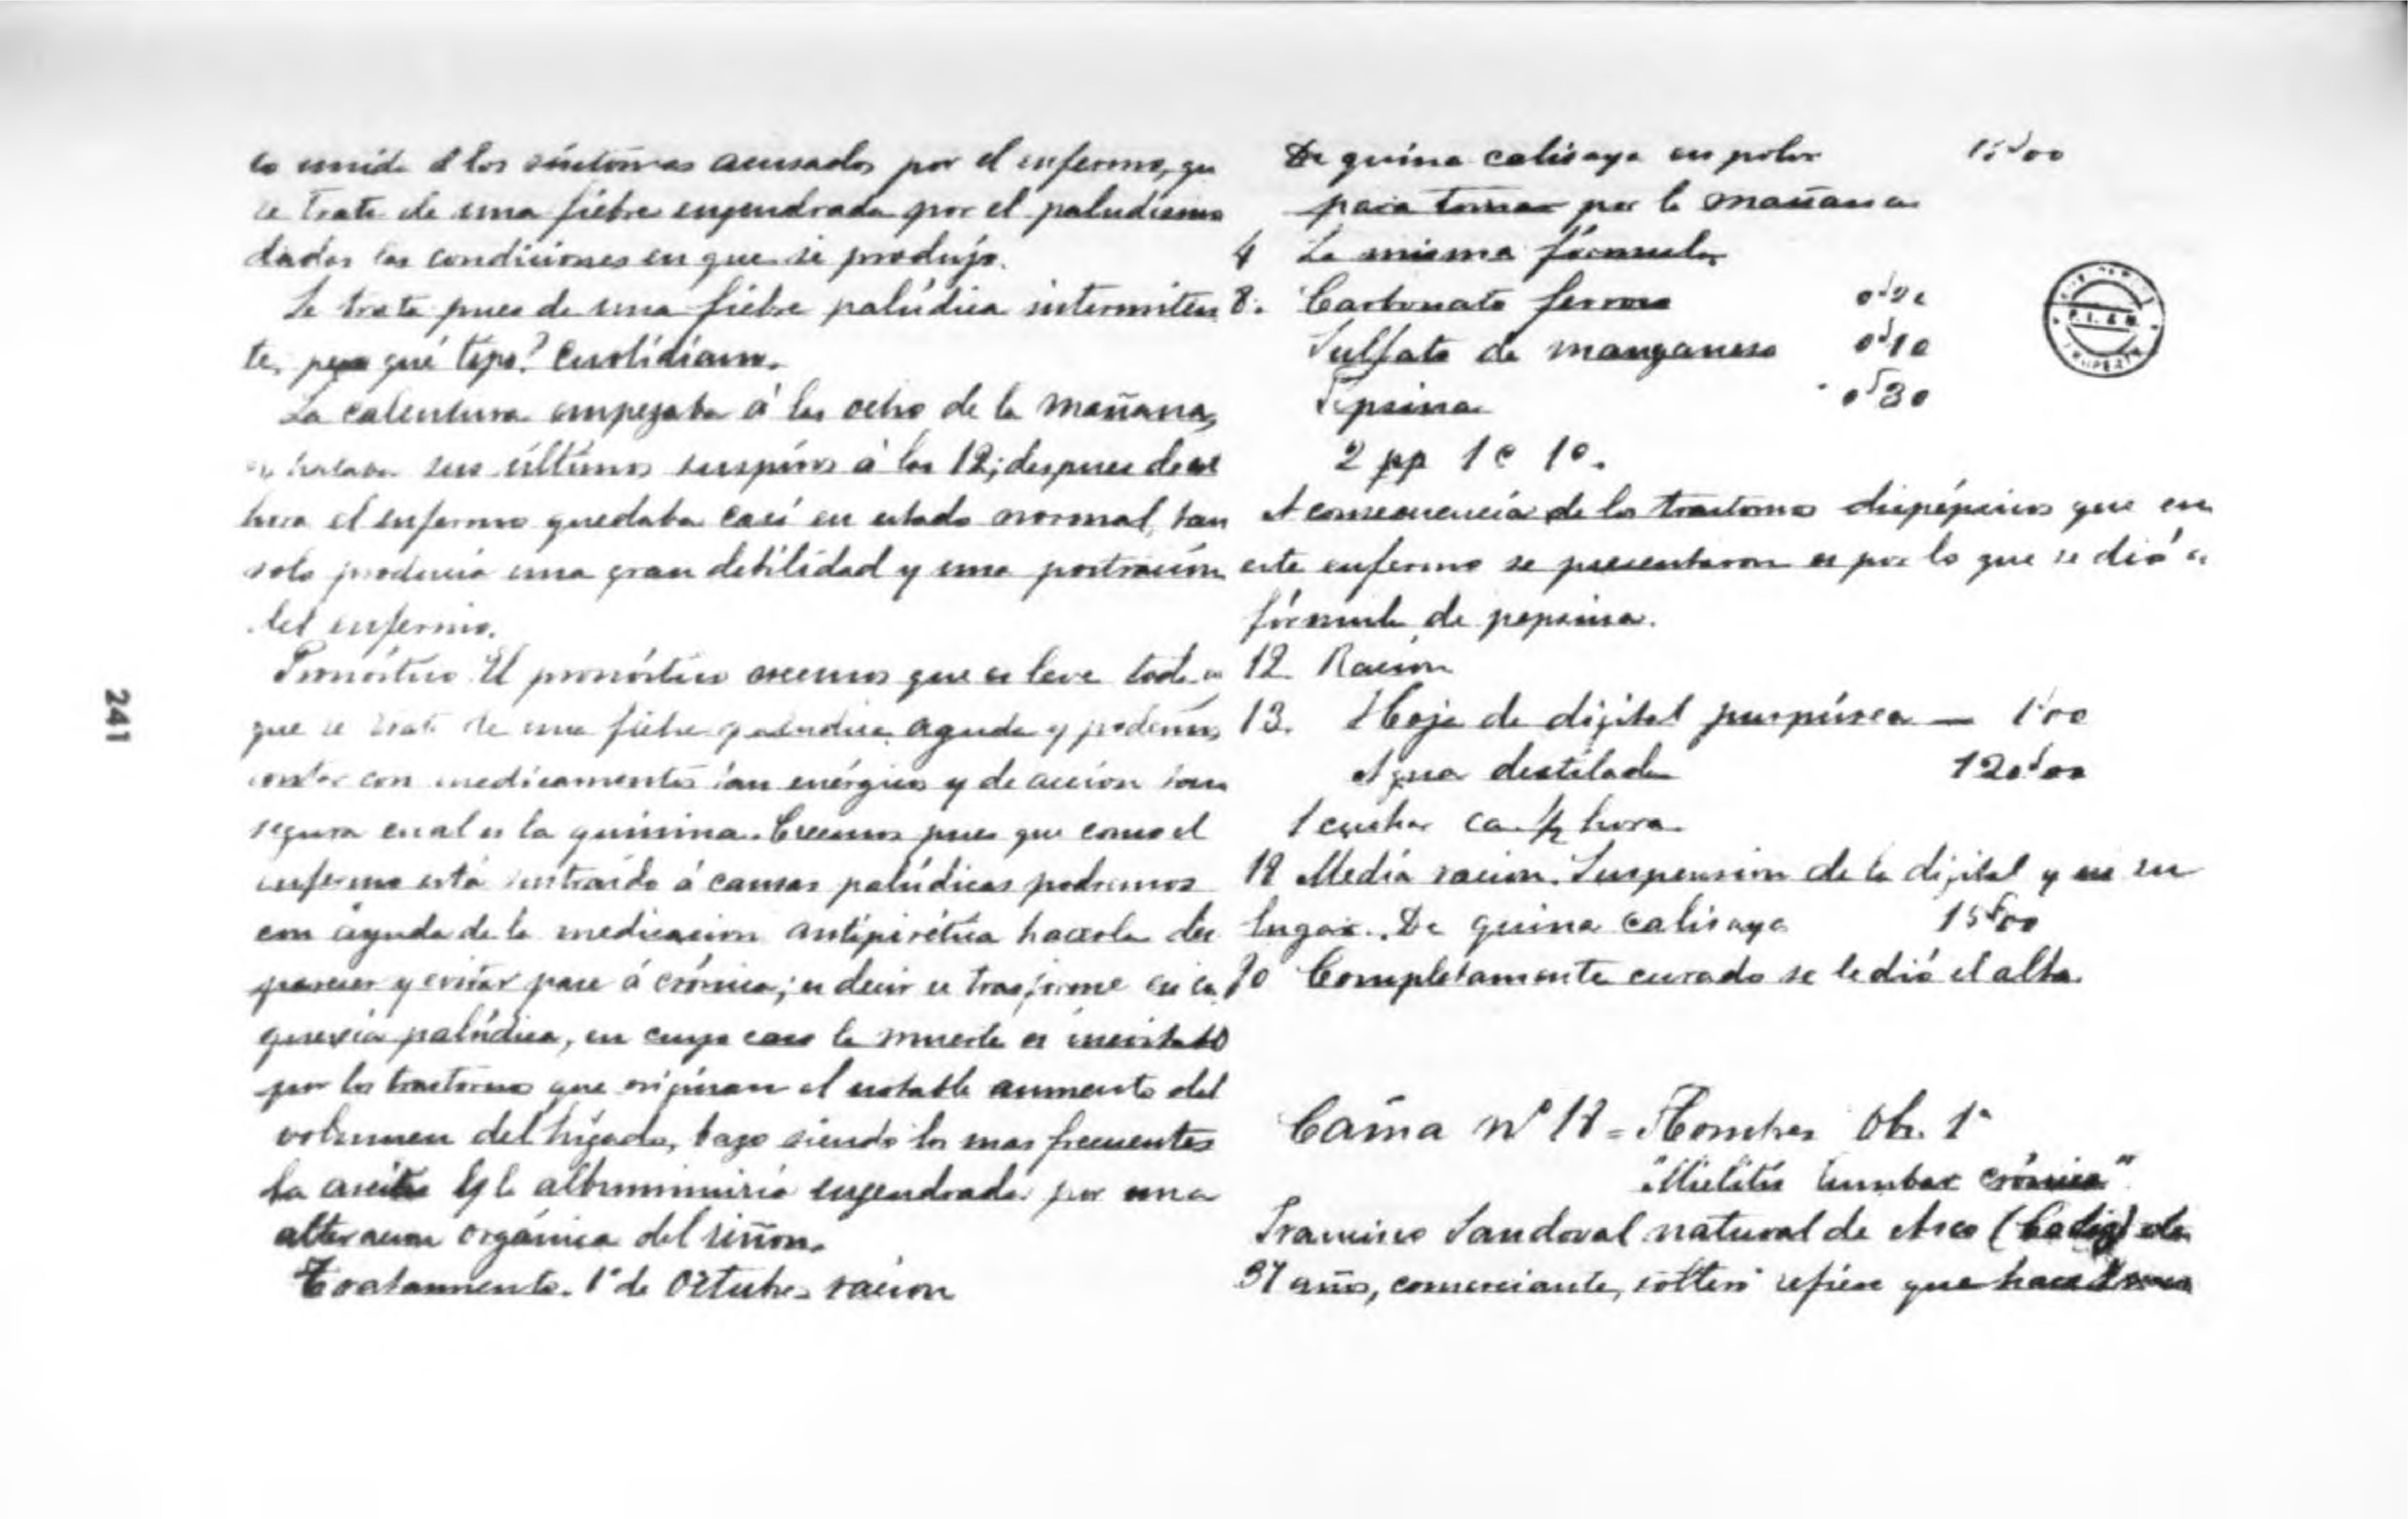 to unido á los síntomas acusados por el enfermo, que
se trata de una fiebre engendrada por el paludismo
dadas las condiciones en que se produjo.
Se trata pues de una fiebre palúdica intermiten
te, pero qué tipo? Cuotidiano.
La calentura empezaba á las ocho de la mañana,
sus últimos suspiros á las 12; despues de esa
hora el enfermo quedaba casi en estado normal, tan
solo producia una gran debilidad y una postración
del enfermo.
Pronóstico. El pronóstico creemos que es leve toda vez
que se trata de una fiebre palúdica aguda y podemos
contar con medicamentos tan enérgicos y de accion tan
segura cual es la quinina. Creemos pues que como el
enfermo está sustraido á causas palúdicas podremos
con ayuda de la medicacion antipirética hacerla des
parecer y evitar pase á crónica; es decir se trasforme en ca
quexia palúdica, en cuyo caso la muerte es inevitable
por los trastornos que originan el notable aumento del
volumen del higado, bazo siendo los mas frecuentes
la ascitis y la albuminuria engendrada por una
alteracion orgánica del riñon.
Tratamiento. 1º de Octubre racion
De quina calisaya en polvo 15'00
para tomar por la mañana
4 La misma fórmula
8. Carbonato ferroso
Sulfato de manganeso 0'10
Pepsina 0'30
2 pp 1 c 1º.
A consecuencia de los trastornos dispépsicos que en
este enfermo se presentaron es por lo que se dió la
fórmula de pepsina.
12 Racion
13. Hoja de digital purpúrea — 1'00
Agua destilada 120'00
1 cuchar ca. ½ hora.
18 Media racion. Suspension de la digital y en su
lugar. De quina calisaya 15'00
20 Completamente curado se le dió el alta.
Cama nº 18 = Hombres Obs. 1ª
"Mielitis lumbar crónica"
Francisco Sandoval natural de Arco (Cadiz) de
37 años, comerciante, soltero refiere que hace
241